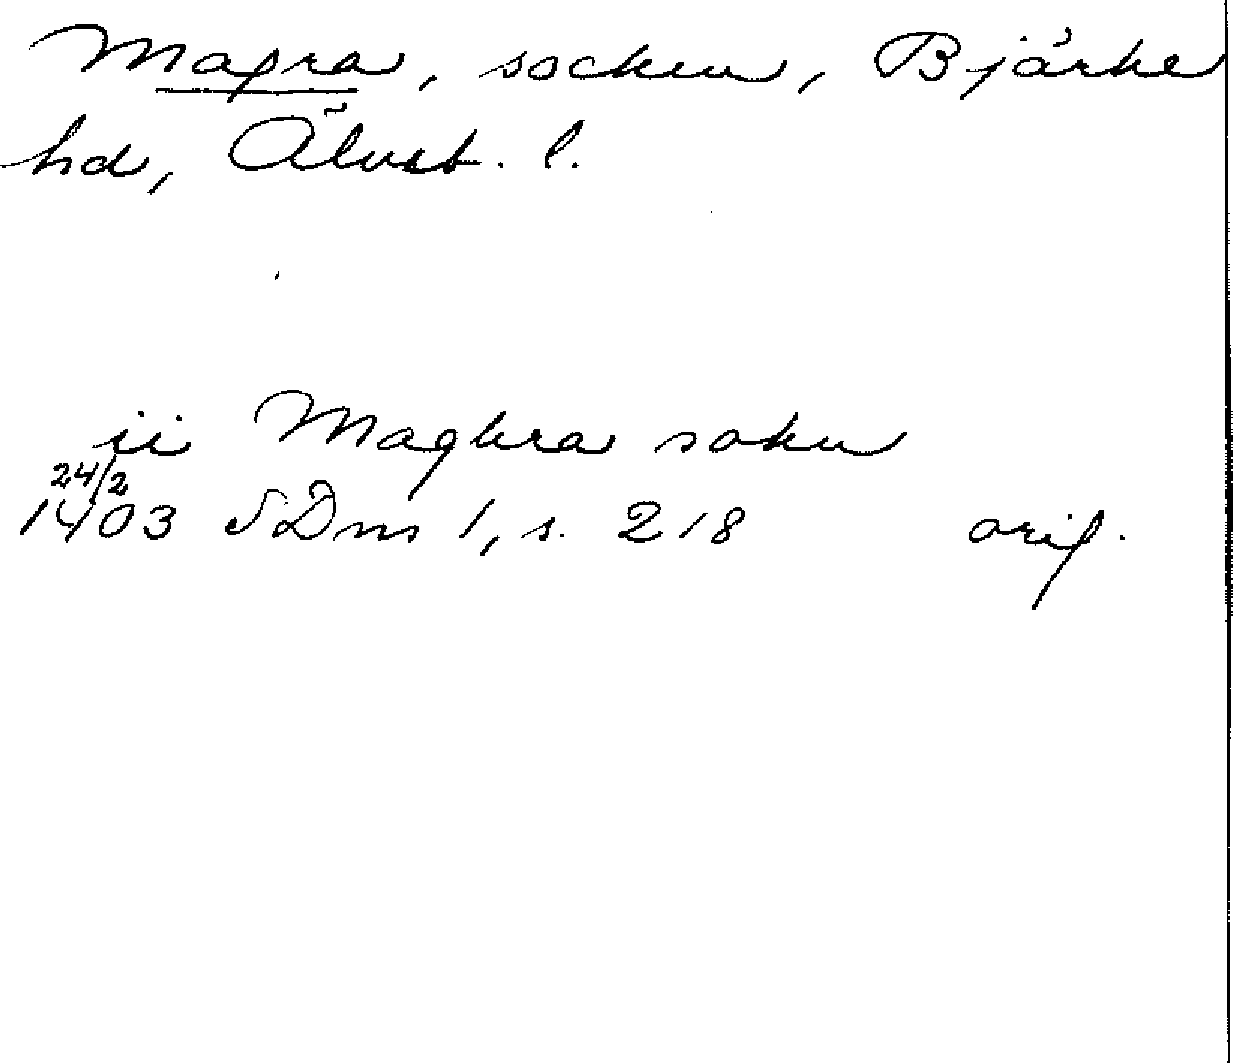 Magra, socken, Bjärke
hd, Älvsb. l.
ii Maghra sokn
24/2
1403 SDns 1, s. 218 orig.